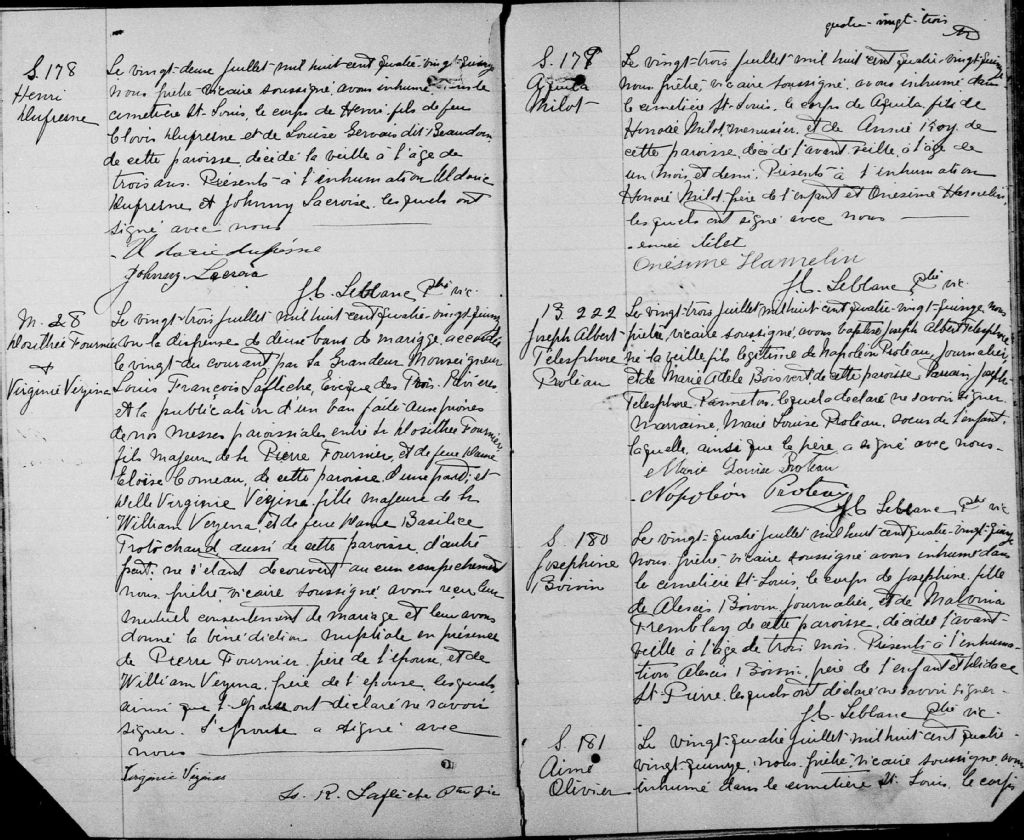 S. 178
Henri
Dufresne
Le vingt-deux juillet mil huit cent quatre-vingt-quinze
nous prêtre vicaire soussigné, avons inhumé dans le
cimetière St-Louis, le corps de Henri, fils de feu
Clovis Dufresne et de Louise Gervais dit Beaudoin
de cette paroisse, décédé la veille à l'âge de
trois ans. Présents à l'inhumation Aldorie
Dufresne et Johnny Lacroix, lesquels ont
signé avec nous
Johnny Lacroix
J.C. Leblanc Ptre vic.
M. 28
Dosithée Fournier
et
Virginie Vezina
Le vingt-trois juillet mil huit cent quatre-vingt-quinze
vu la dispense de deux bans de mariage accordée
le vingt du courant par Sa Grandeur Monseigneur
Louis François Laflèche, Evêque des Trois-Rivières
et la publication d'un ban faite aux prônes
de nos messes paroissiales entre Sr Dosithée Fournier,
fils majeur de Sr Pierre Fournier, et de feue Dame
Eloïse Comeau, de cette paroisse d'une part; et
Delle Virginie Vézina, fille majeure de Sr
William Vezina, et de feue Dame Basilice
Trotochaud, aussi de cette paroisse, d'autre
part; ne s'étant découvert aucun empêchement
nous prêtre, vicaire soussigné, avons reçu leur
mutuel consentement de mariage et leur avons
donné la bénédiction nuptiale en présence
de Pierre Fournier, père de l'époux, et de
William Vezina, père de l'épouse, lesquels
ainsi que l'époux ont déclaré ne savoir
signer. L'épouse a signé avec
nous
Virginie Vézinas
L. R. Laflèche Ptre Vic
quatre-vingt-trois
S. 179
Aquila
Milot
Le vingt-trois juillet mil huit cent quatre-vingt-quinze
nous prêtre, vicaire soussigné, avons inhumé dans
le cimetière St-Louis, le corps de Aquila, fils de
Honoré Milot, menusier, et de Annie Roy, de
cette paroisse, décédé l'avant-veille, à l'âge de
un mois et demi. Présents à l'inhumation
Honoré Milot, père de l'enfant et Onesime Hamelin,
lesquels ont signé avec nous
Onésime Hamelin
J.C. Leblanc Ptre vic.
B 222
Joseph Albert
Télesphore
Proteau
Le vingt-trois juillet mil huit cent quatre-vingt-quinze, nous
prêtre, vicaire soussigné, avons baptisé, Joseph Albert Télesphore
né la veille, fils légitime de Napoléon Proteau, journalier,
et de Marie Adèle Boisvert de cette paroisse. Parrain, Joseph
Télesphore Panneton, lequel a déclaré ne savoir signer.
Marraine, Marie Louise Proteau, soeur de l'enfant,
laquelle, ainsi que le père a signé avec nous.
Marie Louise Proteau
Napoléon Proteau
J.C. Leblanc Ptre vic
S. 180
Josephine
Boivin
Le vingt-quatre juillet mil huit cent quatre-vingt-quinze
nous prêtre, vicaire soussigné avons inhumé dans
le cimetière St-Louis, le corps de Josephine, fille
de Alexis Boivin, journalier, et de Malvina
Tremblay de cette paroisse, décédée l'avant-
veille à l'âge de trois mois. Présents à l'inhuma-
tion Alexis Boivin, père de l'enfant et
St-Pierre, lesquels ont déclaré ne savoir signer.
J.C. Leblanc Ptre vic.
S. 181
Aimé
Olivier
Le vingt-quatre juillet mil huit cent quatre-
vingt-quinze, nous, prêtre, vicaire soussigné, avons
inhumé dans le cimetière St. Louis, le corps